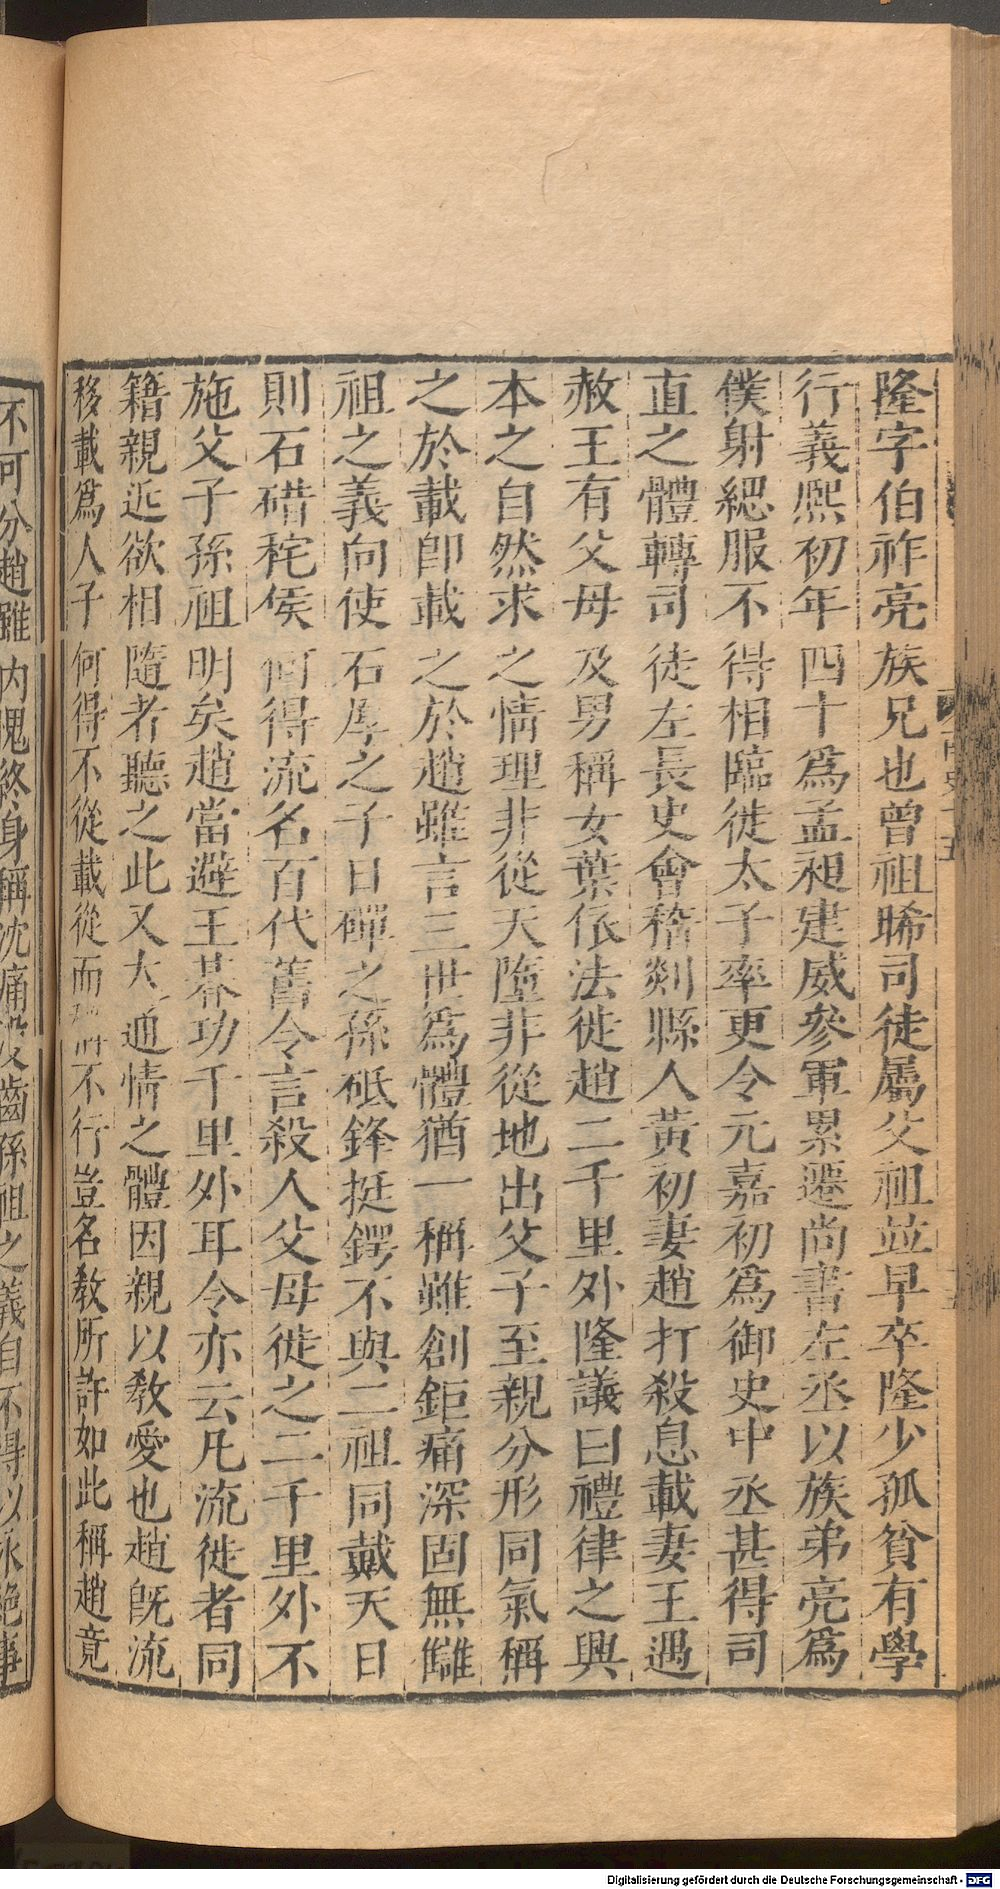 隆字伯祚亮族兄也曾祖晞司徒屬父祖並早卒隆少孤貧有學
行義熙初年四十爲孟昶建威參軍累遷尚書左丞以族弟亮爲
僕射緦服不得相臨徙太子率更令元嘉初爲御史中丞甚得司
直之體轉司徒左長史會稽剡縣人黃初妻趙打殺息載妻王遇
赦王有父母及男稱女葉依法徙趙二千里外隆議曰禮律之興
本之自然求之情理非從天墮非從地出父子至親分形同氣稱
之於載卽載之於趙雖言三世爲體猶一稱雖創鉅痛深固無讎
祖之義向使石厚之子日磾之孫砥鋒挺鍔不與二祖同戴天日
則石碏秺侯何得流名百代舊令言殺人父母徙之二千里外不
施父子孫祖明矣趙當避王朞功千里外耳令亦云凡流徙者同
籍親近欲相隨者聽之此又大通情之體因親以敎愛也趙旣流
移載爲人子何得不從載從而 不行豈名敎所許如此稱趙竟
不可分趙雖內愧終身稱沈痛沒齒孫祖之義自不得以永絕事
Digitalisierung gefördert durch die Deutsche Forschungsgemeinschaft - DFG